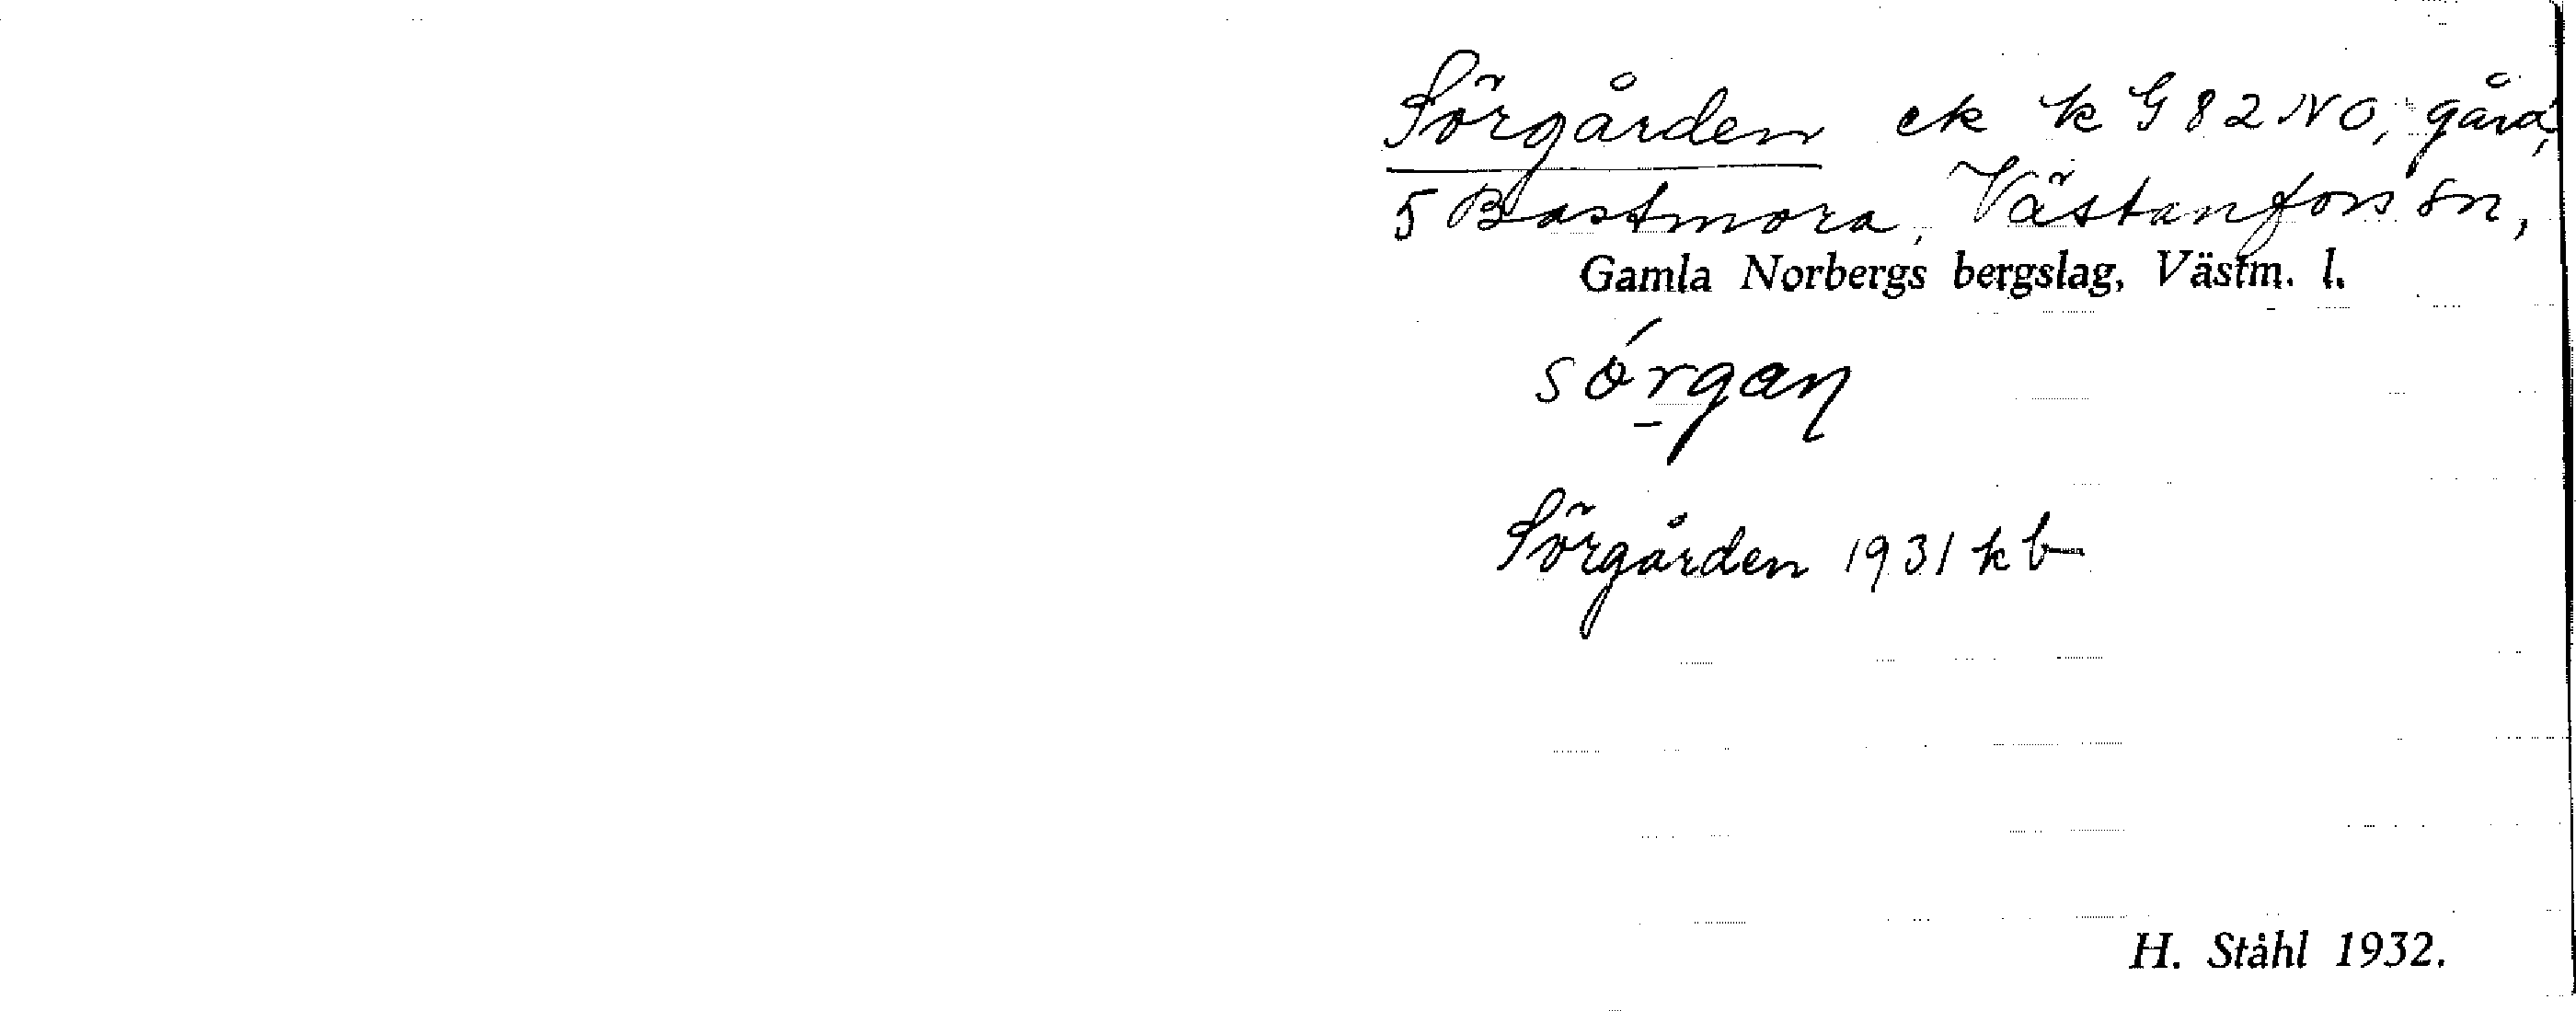 Sörgården ek k G 82 NO, gård,
5 Bastmora, Västanfors sn,
Gamla Norbergs bergslag, Västm. l.
sórgan
Sörgården 1931 kb
H. Ståhl 1932.